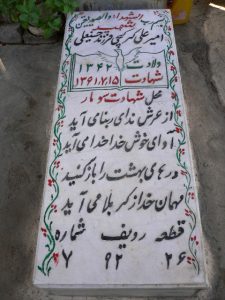 بسم رب الشهدا و الصدیقین
شهید
امیر علی
ولادت
۱۳۴۲
شهادت
۱۳۶۱,۷,۱۵
محل شهادت سومار
از عرش ندای ربنا می آید
آوای خوش خدا خدا می آید
درهای بهشت را باز کنید
مهمان خدا ز کربلا می آید
قطعه ردیف شماره
۲۶ ۹۲ ۷